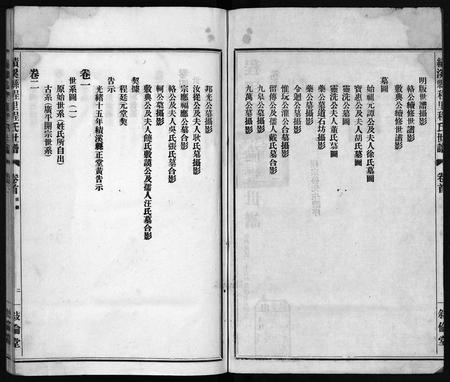 績溪縣程里程氏世譜
卷首
敍倫堂
明版世譜攝影
輅公續修世譜
敷典公續修世譜
墓圖
始祖元譚公及夫人徐氏墓圖
寶惠公及夫人胡氏墓圖
靈洗公墓圖
靈洗公夫人董氏墓圖
藥公墓道石坊攝影
藥公墓攝影
令洄公墓攝影
惟玩公墓合影
九萬公墓攝影
九皐公墓攝影
邦光公墓攝影
汝從公及夫人耿氏墓攝影
宗應福應公墓合影
輅公及夫人吳氏張氏墓合影
軻公墓攝影
敷典公及夫人饒氏敷讀公及孺人汪氏墓合影
契據
程延元堂契
告示
光緒十五年績溪縣正堂黃告示
卷一
世系圖(一)
原始世系(姓氏所自出)
古系(廣平開宗世系)
卷二
績溪縣程里程氏世譜
卷首
二
敍倫堂